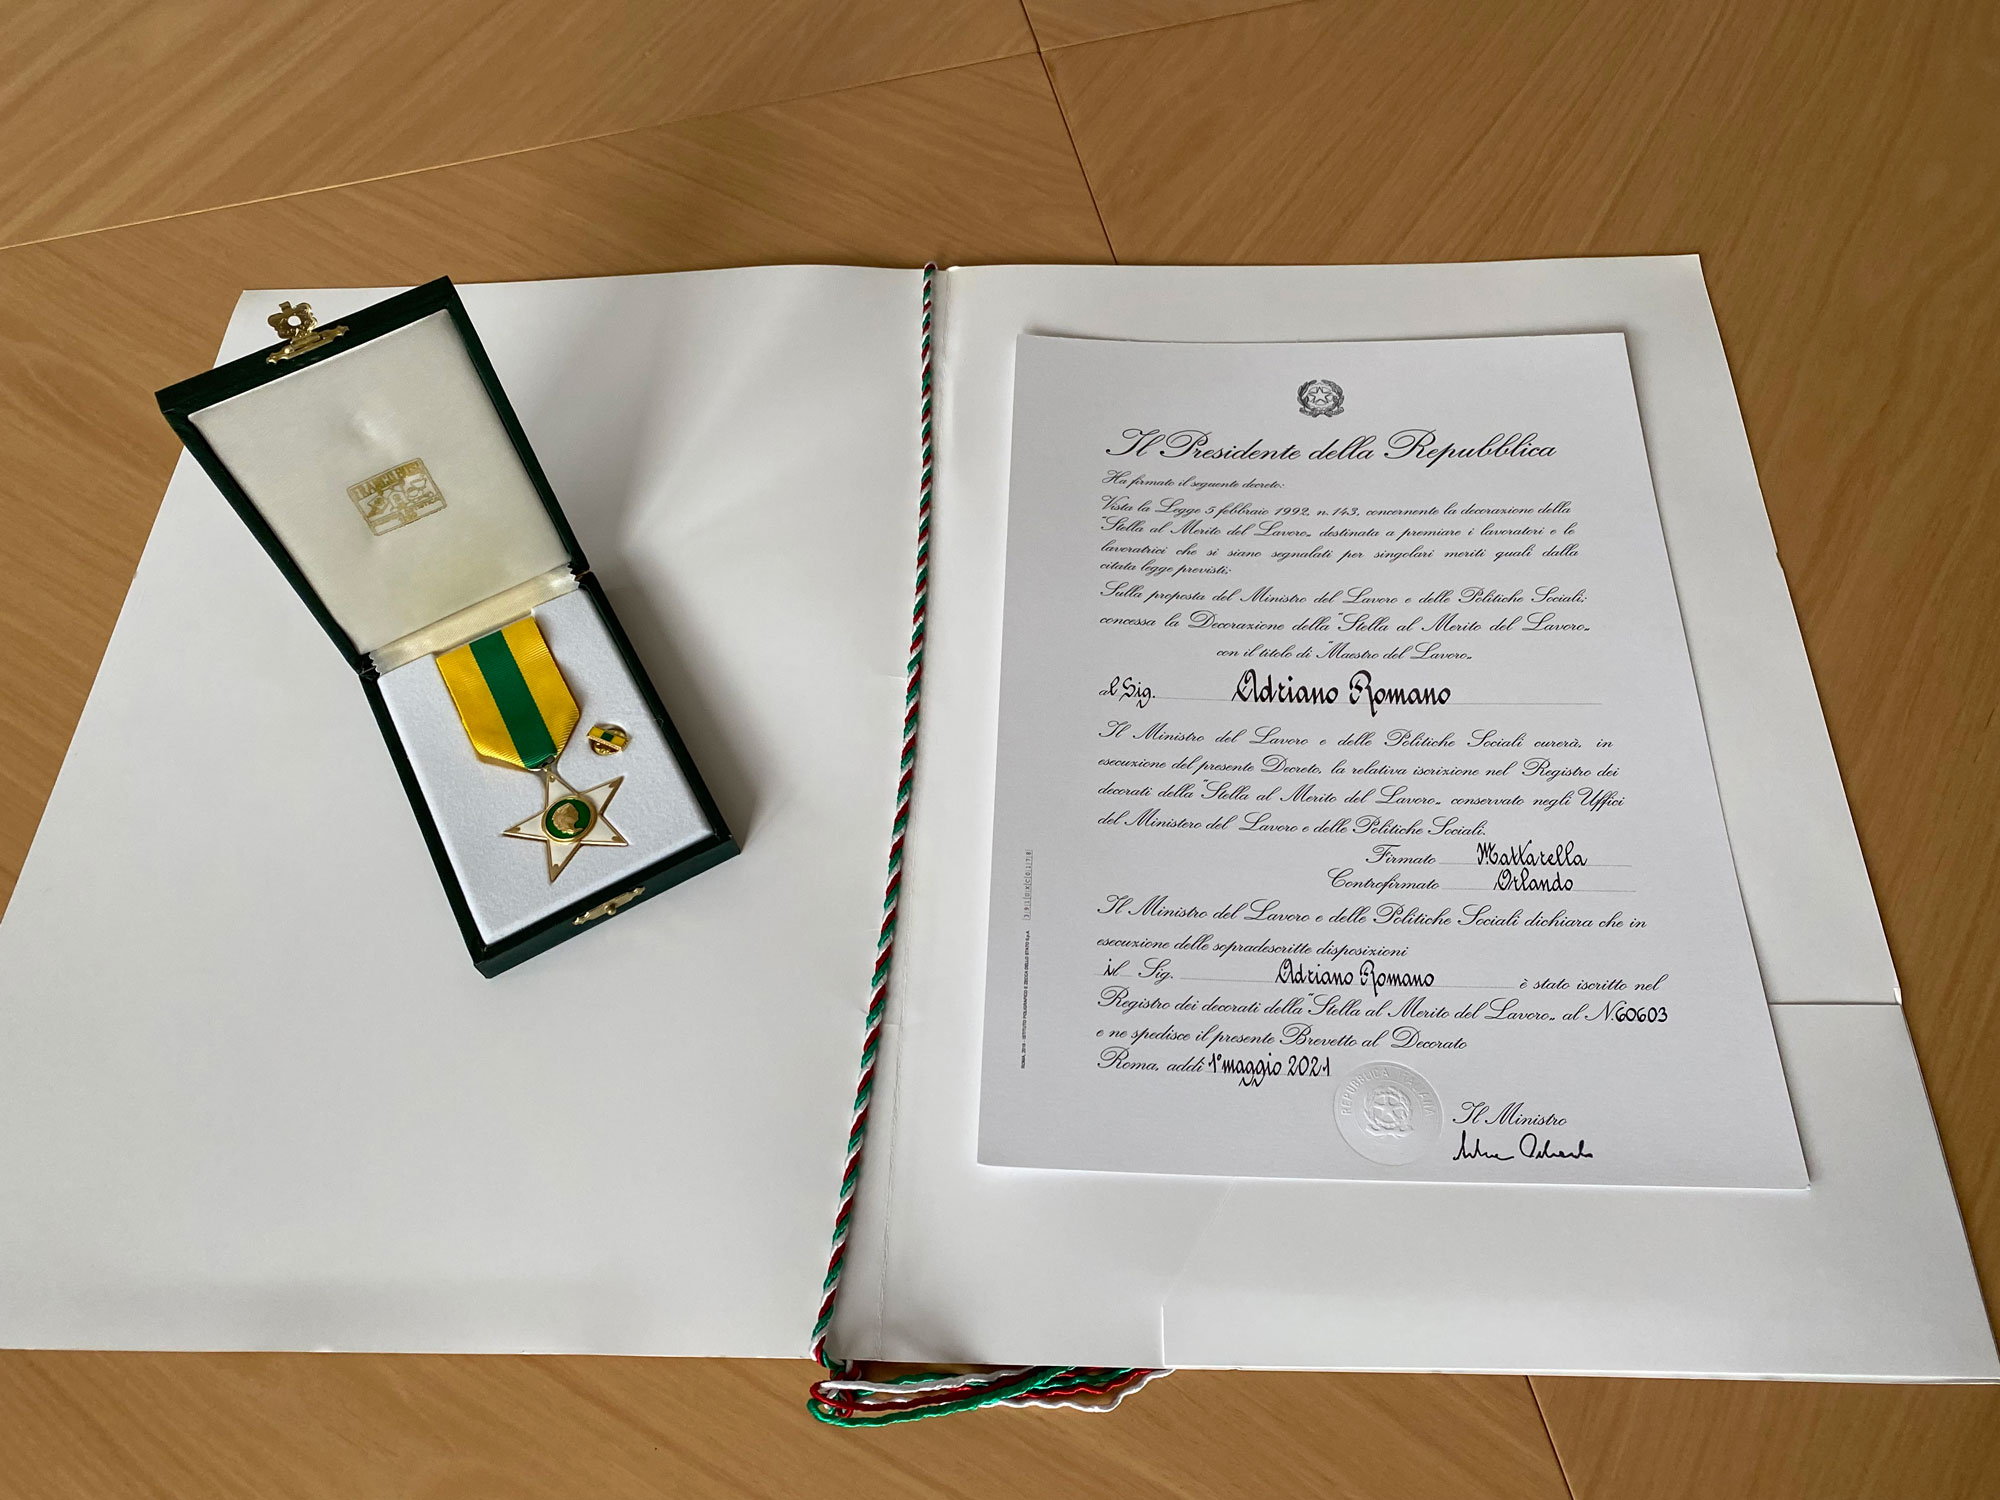 Il Presidente della Repubblica
Ha firmato il seguente decreto:
Vista la Legge 5 febbraio 1992, n. 143, concernente la decorazione della
"Stella al Merito del Lavoro„ destinata a premiare i lavoratori e le
lavoratrici che si siano segnalati per singolari meriti quali dalla
citata legge previsti;
Sulla proposta del Ministro del Lavoro e delle Politiche Sociali;
concessa la Decorazione della "Stella al Merito del Lavoro„
con il titolo di "Maestro del Lavoro„
al Sig. Adriano Romano
Il Ministro del Lavoro e delle Politiche Sociali curerà, in
esecuzione del presente Decreto, la relativa iscrizione nel Registro dei
decorati della "Stella al Merito del Lavoro„ conservato negli Uffici
del Ministero del Lavoro e delle Politiche Sociali.
Firmato Mattarella
Controfirmato Orlando
Il Ministro del Lavoro e delle Politiche Sociali dichiara che in
esecuzione delle sopradescritte disposizioni
il Sig. Adriano Romano è stato iscritto nel
Registro dei decorati della "Stella al Merito del Lavoro„ al N. 60603
e ne spedisce il presente Brevetto al Decorato
Roma, addì 1° maggio 2021
REPUBBLICA ITALIANA
Il Ministro
ISTITUTO POLIGRAFICO E ZECCA DELLO STATO S.p.A.